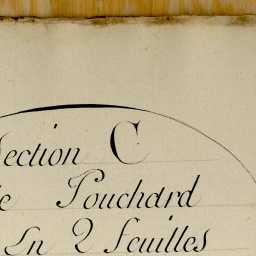 Section C
de Pouchard
En 2 feuilles